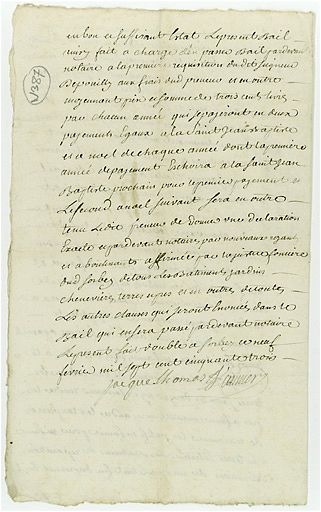 en bon et suffisant Etat Le present Bail
ainsy fait a charge d'en passer Bail pardevant
notaire a la premiere requisition dud. Seigneur
De pouilly aux frais dud preneur et en outre
moyennant prix et somme de trois cent livres
par chacun année qui se payeront en deux
payements Egaux a la Saint Jean Baptiste
et a noel de chaque année dont la premiere
année de payement Eschoira a la Saint Jean
Baptiste prochain pour le premier payement et
Le second a noel suivant sera en outre
tenu Ledit preneur de donner une declaration
Exacte et pardevant notaire par nouveaux royans
et aboutissants affirmée par la justice fonciere
dud sorbey de tous Les Batiments jardins
chenevieres terres et prés et en outre de toutes
Les autres clauses qui seront Enoncées dans le
Bail qui en sera passé pardevant notaire
Le present fait double a sorbey ce neuf
fevrier mil sept cent cinquante trois
jacque thomas
V387